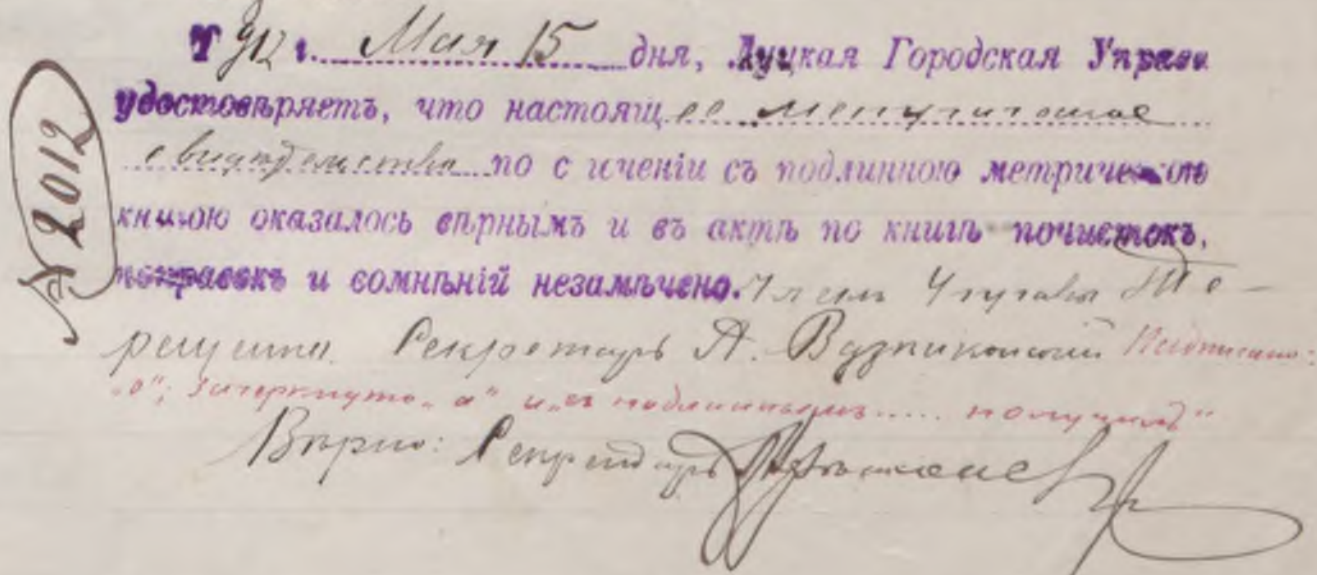 № 2012
1912 г. Мая 15 дня, Луцкая Городская Управа
удостовѣряетъ, что настоящее метрическое
свидѣтельство по с иченіи съ подлинною метрическою
книгою оказалось вѣрнымъ и въ актѣ по книгѣ почистокъ,
поправокъ и сомнѣній незамѣчено. Членъ Управы Те-
рещенко. Секретарь А. Надписано:
„о“; Зачеркнуто „а“ и „съ подлиннымъ..... получилъ“
Вѣрно: Секретарь